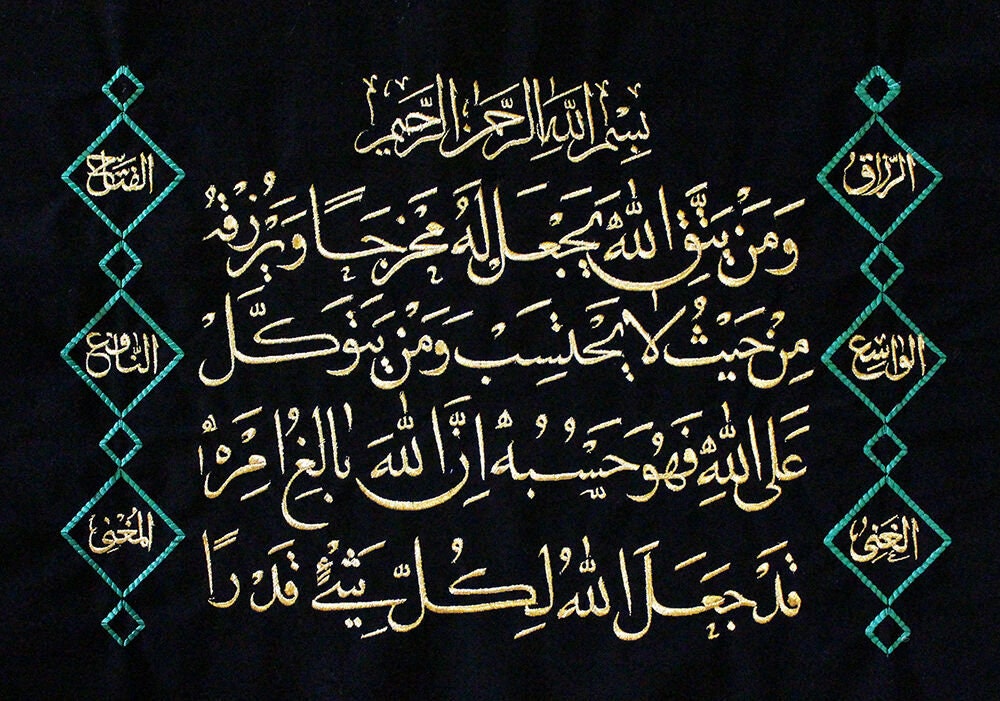 بِسْمِ اللَّهِ الرَّحْمَنِ الرَّحِيمِ
وَمَنْ يَتَّقِ اللَّهَ يَجْعَلْ لَهُ مَخْرَجًا وَيَرْزُقْهُ
مِنْ حَيْثُ لَا يَحْتَسِبُ وَمَنْ يَتَوَكَّلْ
عَلَى اللَّهِ فَهُوَ حَسْبُهُ إِنَّ اللَّهَ بَالِغُ أَمْرِهِ
قَدْ جَعَلَ اللَّهُ لِكُلِّ شَيْءٍ قَدْرًا
الرزاق
الواسع
الغنى
الفتاح
النافع
المغنى